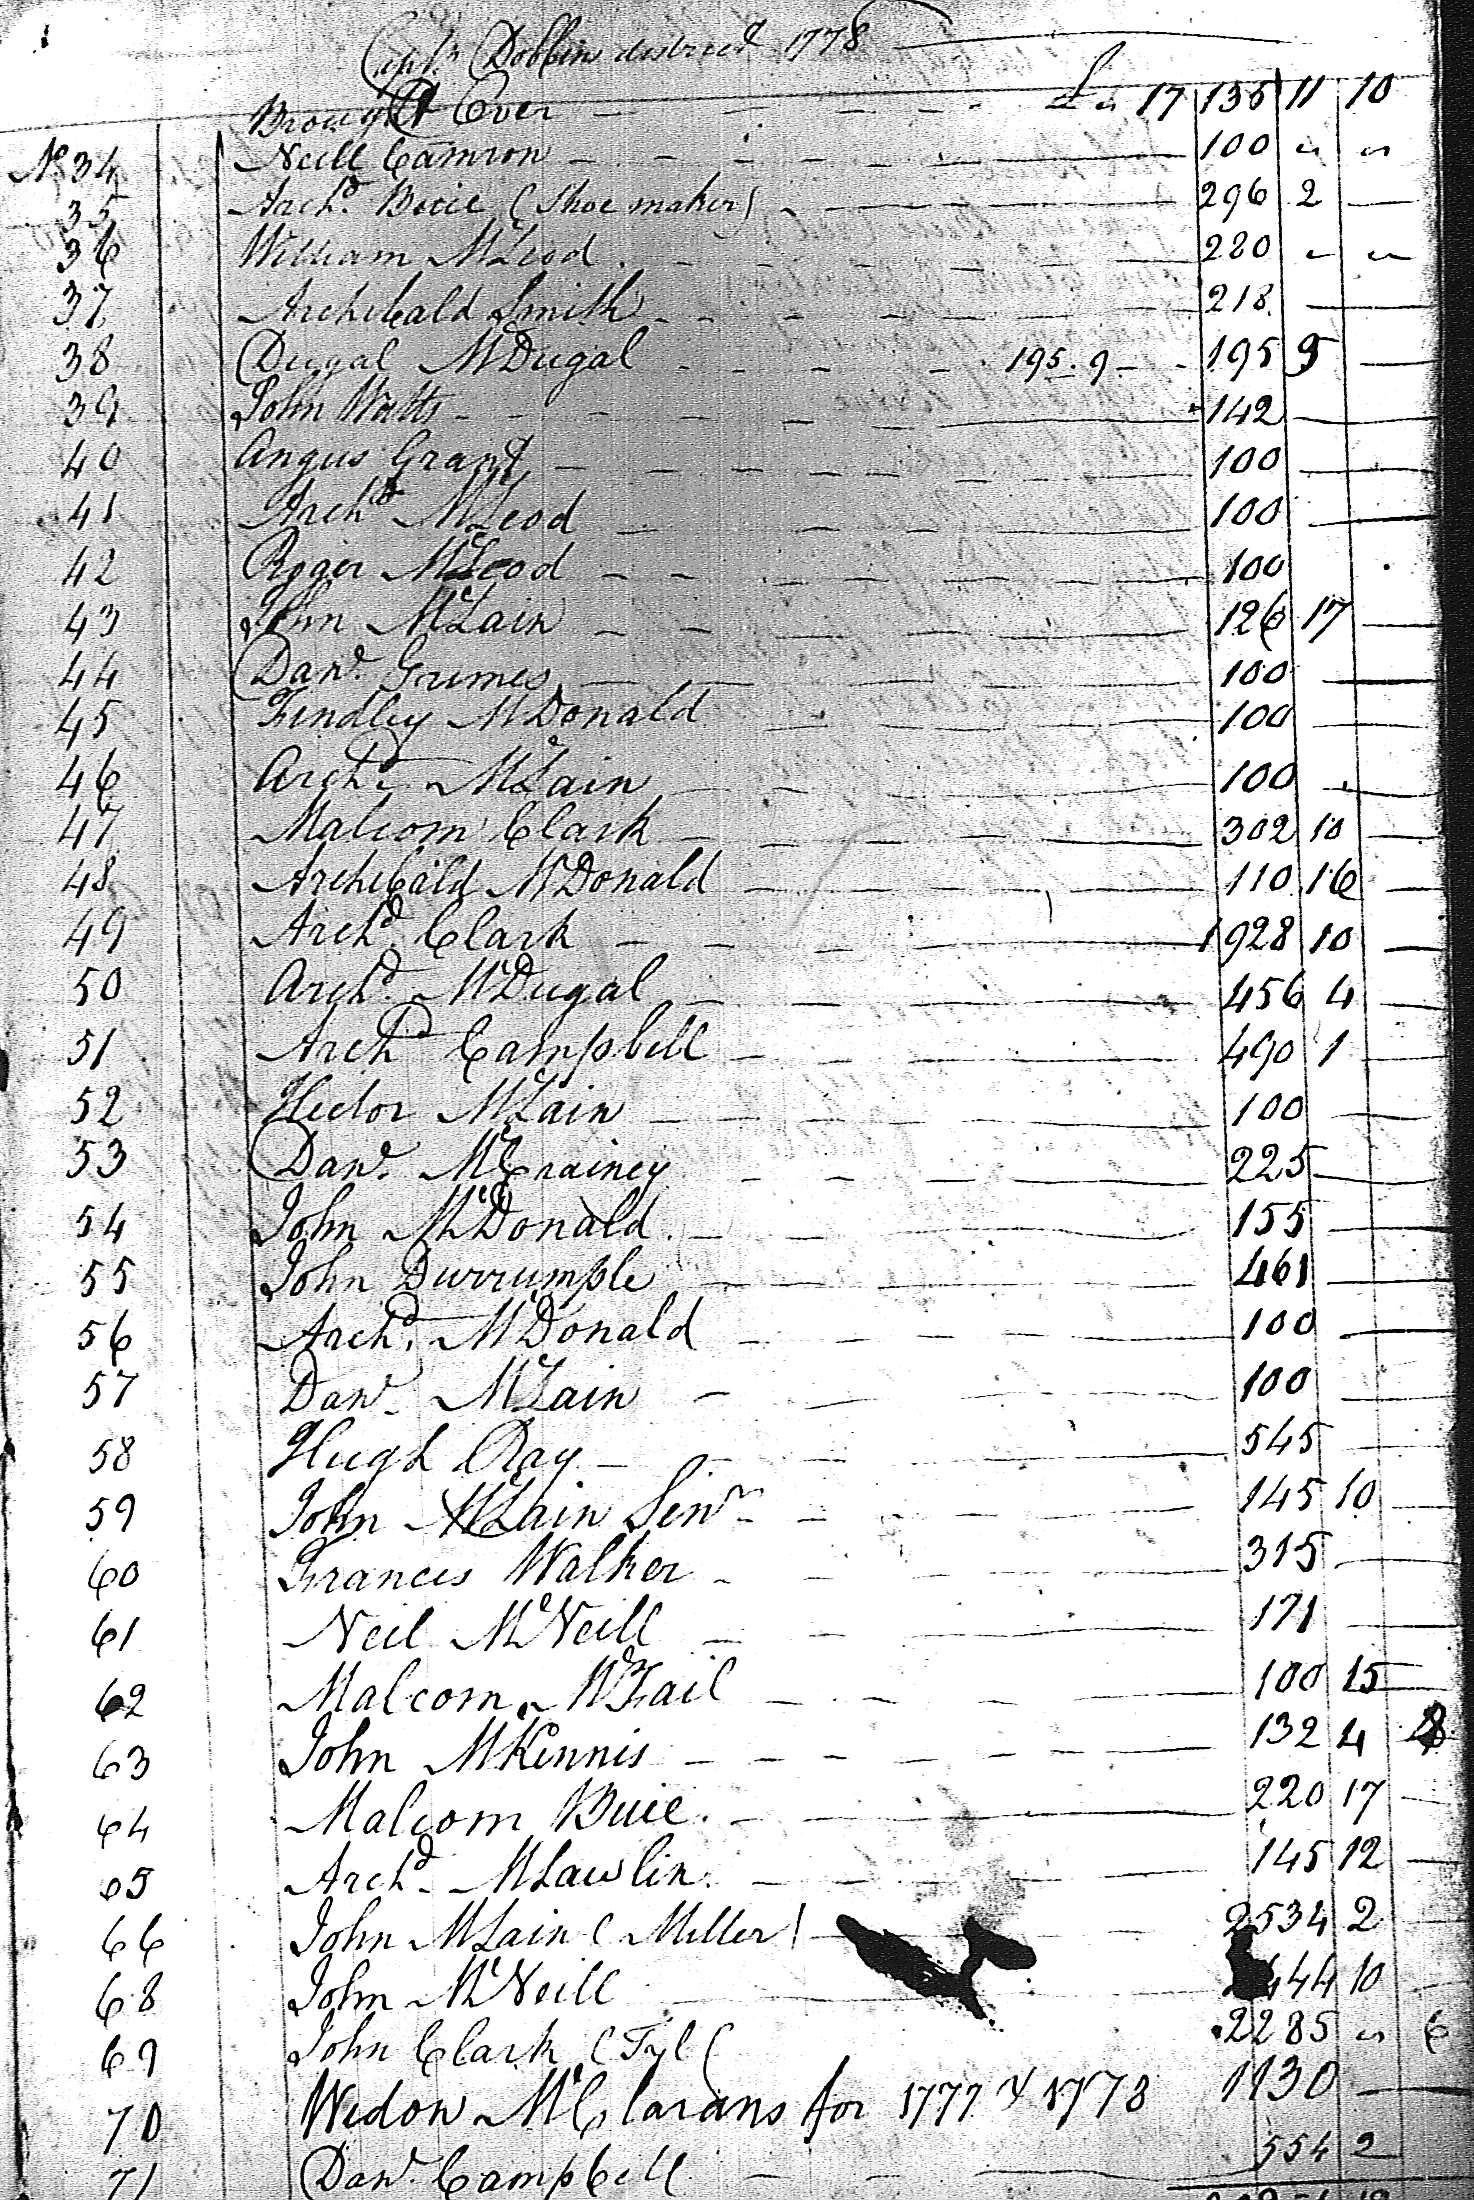 Capt. Dobbins district 1778
Brought Over - - - - £ " 17 135 11 10
No. 34 Neill Camron - - - - 100 " "
35 Archd. Buie (Shoe maker) - 296 2 -
36 William McLeod - - - 280 " "
37 Archibald Smith - - - 218 -
38 Dugal McDugal - - - 195. 9 - - 195 9 -
39 John Watts - - - 142 -
40 Angus Grant - - - 100 -
41 Archd McLeod - - - 100 -
42 Roger McLeod - - - 100
43 John McLain - - - 126 17 -
44 Danl. Grimes - - - 100 -
45 Findley McDonald - - 100 -
46 Archd. McLain - - - 100
47 Malcom Clark - - - 302 10 -
48 Archibald McDonald - - 110 16 -
49 Archd. Clark - - - 1928 10 -
50 Archd. McDugal - - - 456 4 -
51 Archd Campbell - - - 490 1 -
52 Hector McLain - - - 100 -
53 Danl. McCrainey - - - 225 -
54 John McDonald. - - - 155 -
55 John Durrumple - - - 461 -
56 Archd. McDonald - - - 100 -
57 Danl. McLain - - - 100 -
58 Hugh Ray - - - 545 -
59 John McLain Senr - - - 145 10 -
60 Frances Walker - - - 315 -
61 Neil McNeill - - - 171 -
62 Malcom McFail - - - 100 15 -
63 John McKennis - - - 132 4 8
64 Malcom Buie. - - - 220 17 -
65 Archd. McLawlin. - - - 145 12 -
66 John McLain (Miller) - - 2534 2 -
68 John McNeill - 444 10 -
69 John Clark (Tyl( 2285 " 6
70 Widow McClarans for 1777 & 1778 1130 -
71 Danl. Campbell - - - 554 2